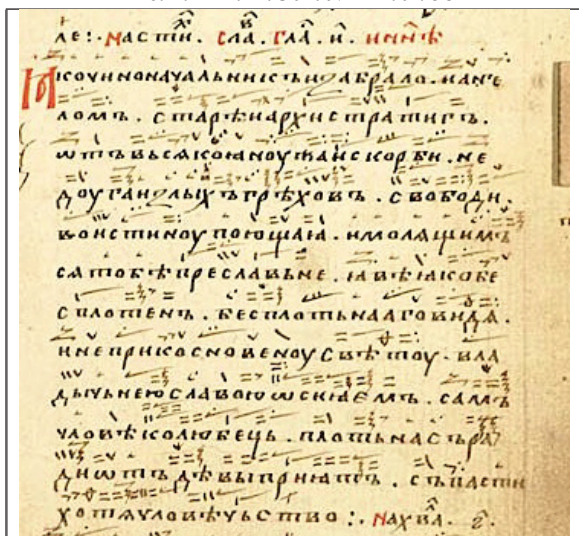 ле :· На сти. Сла. Гла. и҃. и ннѣ
Ꙗко чиноначальникъ и забрало. и анге
ломъ. старѣи архистратигъ.
ѡтъ вьсякоꙗ ноужа и скорби. не
доуга и злыхъ грѣховъ. свободи.
воистиноу поющаꙗ. и молящимъ
ся тобѣ преславьне. ꙗвѣ ꙗко бе
сплотенъ. бесплотьнааго видя.
и неприкосновеноу свѣтоу. вла
дычьнею славою ѡсиꙗемъ. самъ
чловѣколюбець. плоть насъ ра
ди ѡтъ дѣвы приꙗтъ. съпасти
хотя чловѣчьство :· На хва. г҃.